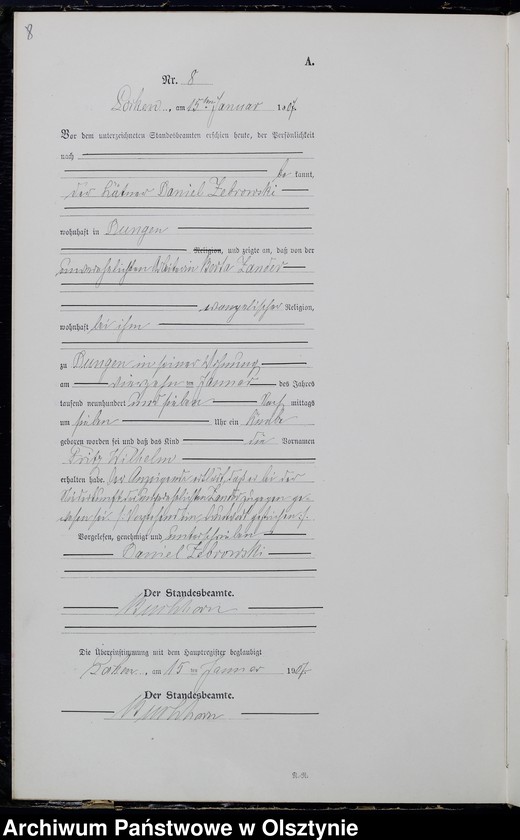 8
A.
Nr. 8
Locken, am 15ten Januar 1907.
Vor dem unterzeichneten Standesbeamten erschien heute, der Persönlichkeit
nach
be kannt,
der Kätner Daniel Zebrowski
wohnhaft in Bungen
Religion, und zeigte an, daß von der
unverehelichten Arbeiterin Berta Zander
evangelischer Religion,
wohnhaft bei ihm
zu Bungen in seiner Wohnung
am vierzehn ten Januar des Jahres
tausend neunhundert und sieben Nach mittags
um sieben Uhr ein Knabe
geboren worden sei und daß das Kind die Vornamen
Fritz Wilhelm
erhalten habe. Der Anzeigende erklärt daß er bei der
Niederkunft der unverehelichten Zander zugegen ge-
wesen sei.
Vorgelesen, genehmigt und unterschrieben
Daniel Zebrowski
Der Standesbeamte.
Die Übereinstimmung mit dem Hauptregister beglaubigt
Locken, am 15 ten Januar 1907.
Der Standesbeamte.
Archiwum Państwowe w Olsztynie